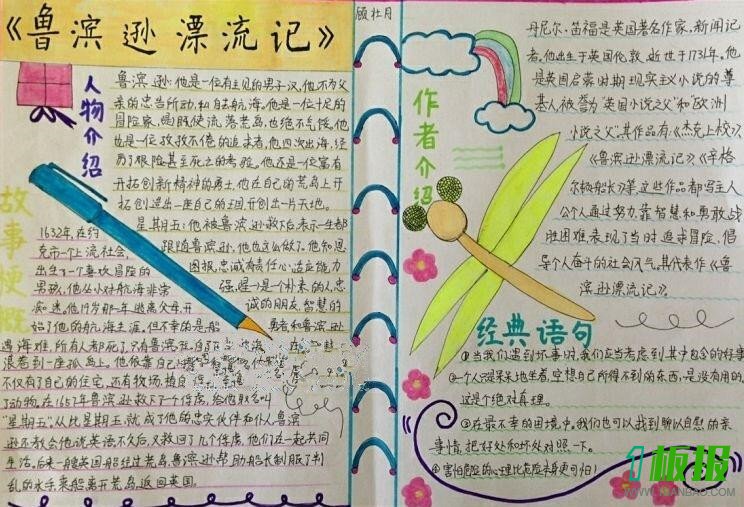 《鲁滨逊漂流记》
顾壮月
人物介绍
鲁滨逊:他是一位有主见的男子汉,他不为父
亲的忠告所动,私自去航海。他是一位十足的
冒险家,即使流落荒岛,也绝不气馁。他
也是一位孜孜不倦的追求者,他四次出海,经
历了艰险甚至死亡的考验。他还是一位富有
开拓创新精神的勇士,他在自己的荒岛上开
拓创造出一座自己的王国开创出一片天地。
星期五:他被鲁滨逊救下后表示一生都
跟随鲁滨逊,他也这么做了。他知恩
图报,忠诚有责任心,适应能力
强,他是一个朴素的人,忠
诚的朋友,智慧的
勇者和鲁滨逊
故事梗概
1632年,在约
克市一个上流社会,
出生了一个喜欢冒险的
男孩,他从小对航海非常
迷。他19岁那一年,逃离父母,开
始了他的航海生涯,但不幸的是,船
遇海难,所有人都死了,只有鲁滨
浪卷到一座孤岛上。他依靠自己
不仅有了自己的住宅,还有牧场,
了动物。在1657年鲁滨逊救下了一个俘虏,给他取名叫
"星期五",从此星期五,就成了他的忠实伙伴和仆人,鲁滨
逊还教会他说英语,不久后又救回了几个俘虏,他们在一起共同
生活。后来一艘英国船经过荒岛,鲁滨逊帮助船长制服了判
乱的水手,乘船离开荒岛,返回英国。
作者介绍
丹尼尔·笛福是英国著名作家,新闻记
者。他出生于英国伦敦,逝世于1731年。他
是英国启蒙时期现实主义小说的尊
基人,被誉为"英国小说之父"和"欧洲
小说之父",其作品有《杰克上校》、
《鲁滨逊漂流记》、《辛格
尔顿船长》等,这些作品都写主人
公个人通过努力,靠智慧和勇敢战
胜困难,表现了当时追求冒险,倡
导个人奋斗的社会风气。其代表作《鲁
滨逊漂流记》。
经典语句
①当我们遇到坏事时,我们应当考虑到其中包含的好事
②一个人只是呆呆地坐着,空想自己所得不到的东西,是没有用的,
这是个绝对真理。
③在最不幸的困境中,我们也可以找到聊以自慰的亲
事情,把好处和坏处对照一下。
④害怕危险的心理比危险本身更可怕!
1板报
WWW.1KANBAO.COM